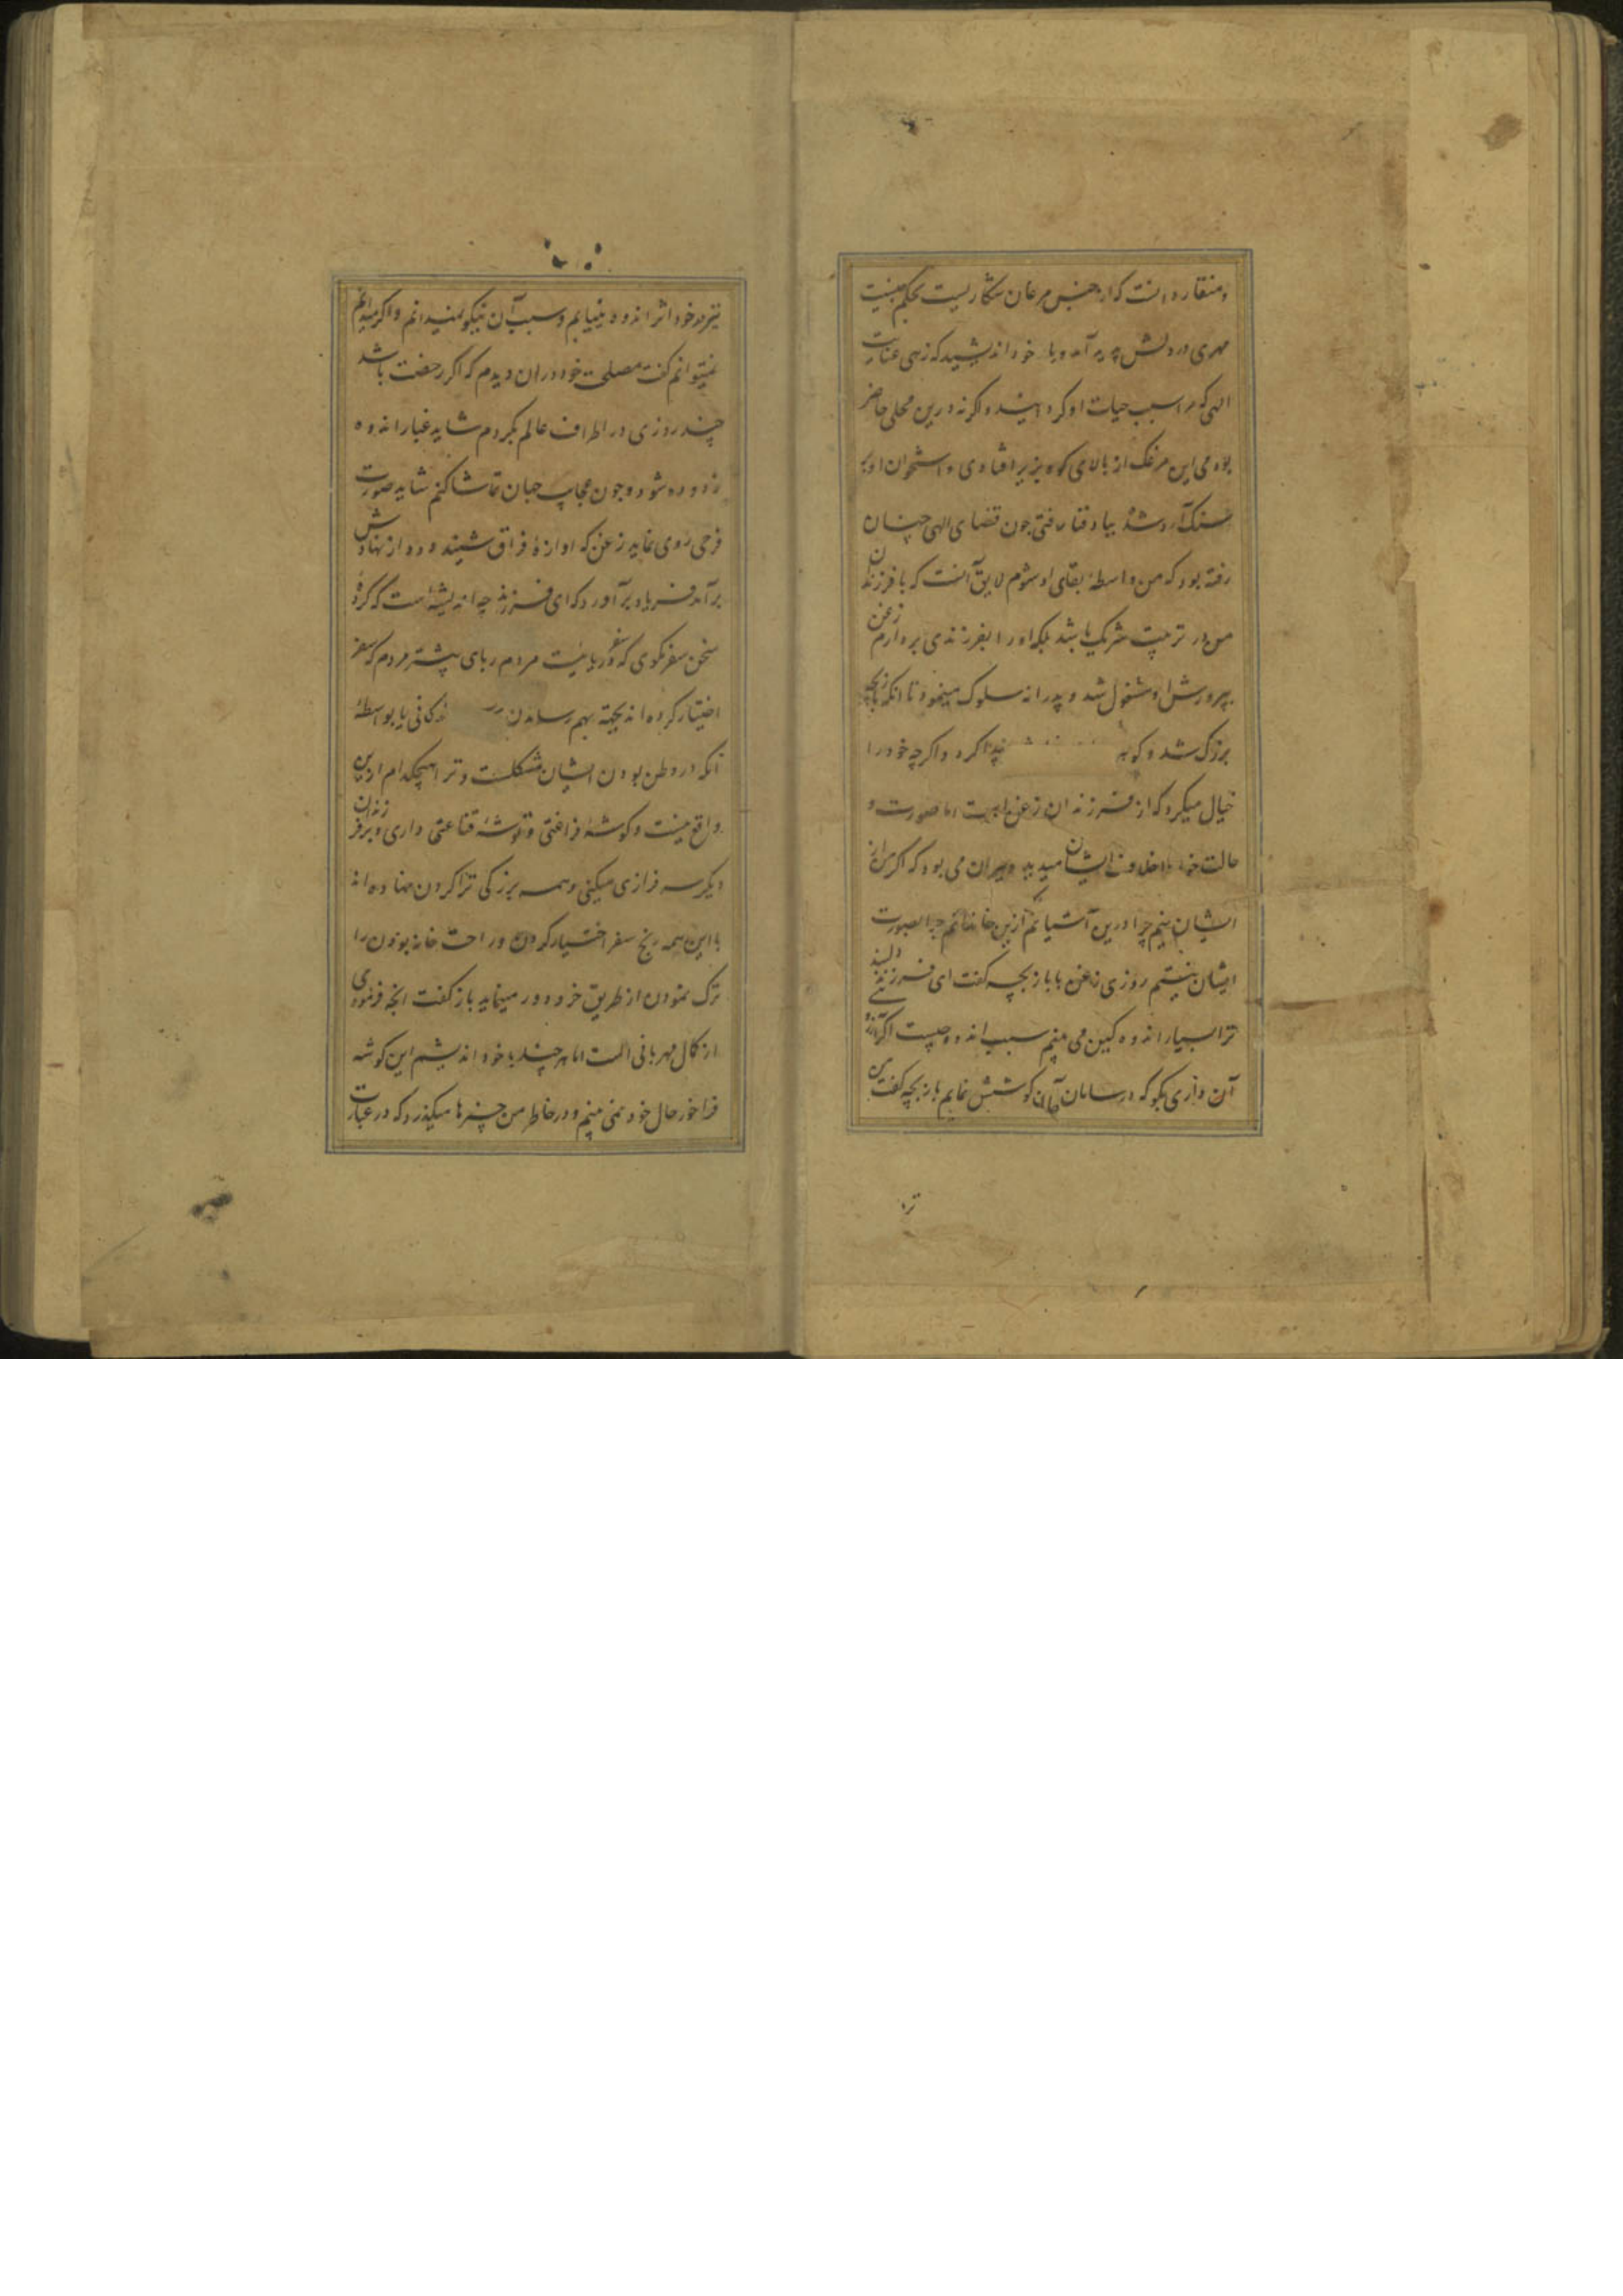 و منقار دانست که از جنس مرغان شکاریست بحکم جنسیت
مهری در دلش پدید آمد و با خود اندیشید که زهی عنایت
الهی که مرا سبب حیات او کردانیدند و اکر نه درین محل حاضر
بودمی این مرغک از بالای کوه بزیر افتادی و استخوان او بر
سنک آرد شده بباد فنا رفتی چون قضای الهی چنان
رفته بود که من واسطهٔ بقای او شوم لایق آنست که با فرزندان
من در تربیت شریک باشد بلکه او را بفرزندی بردارم زغن
بپرورش او مشغول شد و پدرانه سلوک مینمود تا آنکه باز بچه
بزرک شد و کوهر پیدا کرد و اکرچه خود را
خیال میکرد که از فرزندان زغن است اما صورت و
حالت خود خلاف ایشان میدید و حیران می بود که اکر من از
ایشان نیم چرا درین آشیانم و اکر ازین خاندانم چرا بصورت
ایشان نیستم روزی زغن با باز بچه کفت ای فرزند دلبند
ترا بسیار اندوه کین می بینم سبب اندوه چیست اکر آرزو
آن داری بکو که در سامان آن کوشش نمایم باز بچه کفت من
ترا
نیز در خود اثر اندوه مییابم و سبب آن نیکو نمیدانم و اکر میدانم
نمیتوانم کفت مصلحت خود در آن دیدم که اکر رخصت باشد
چند روزی در اطراف عالم بکردم شاید غبار اندوه
زدوده شود و چون عجایب جهان تماشا کنم شاید صورت
فرحی روی نماید زغن که اوازهٔ فراق شنیند دود از نهادش
برآمد فریاد برآورد که ای فرزند چه اندیشه است که کردهٔ
سخن سفر مکوی که سفر دریائیست مردم ربای بیشتر مردم که سفر
اختیار کرده اند بجهة بهم رسیدن کافی یا بواسطهٔ
آنکه در وطن بودن ایشان مشکلست و ترا هیچکدام ازین
واقع نیست و کوشهٔ فراغتی و توشهٔ قناعتی داری و بر فرزندان
دیکر سرفرازی میکنی و همه بزرکی ترا کردن نهاده اند
با این همه رنج سفر اختیار کردن و راحت خانه بودن را
ترک نمودن از طریق خرد دور مینماید باز کفت انچه فرمودی
از کمال مهربانی است اما هر چند با خود اندیشم این کوشه
فراخور حال خود نمی بینم و در خاطر من چیزها میکذرد که در عبارت